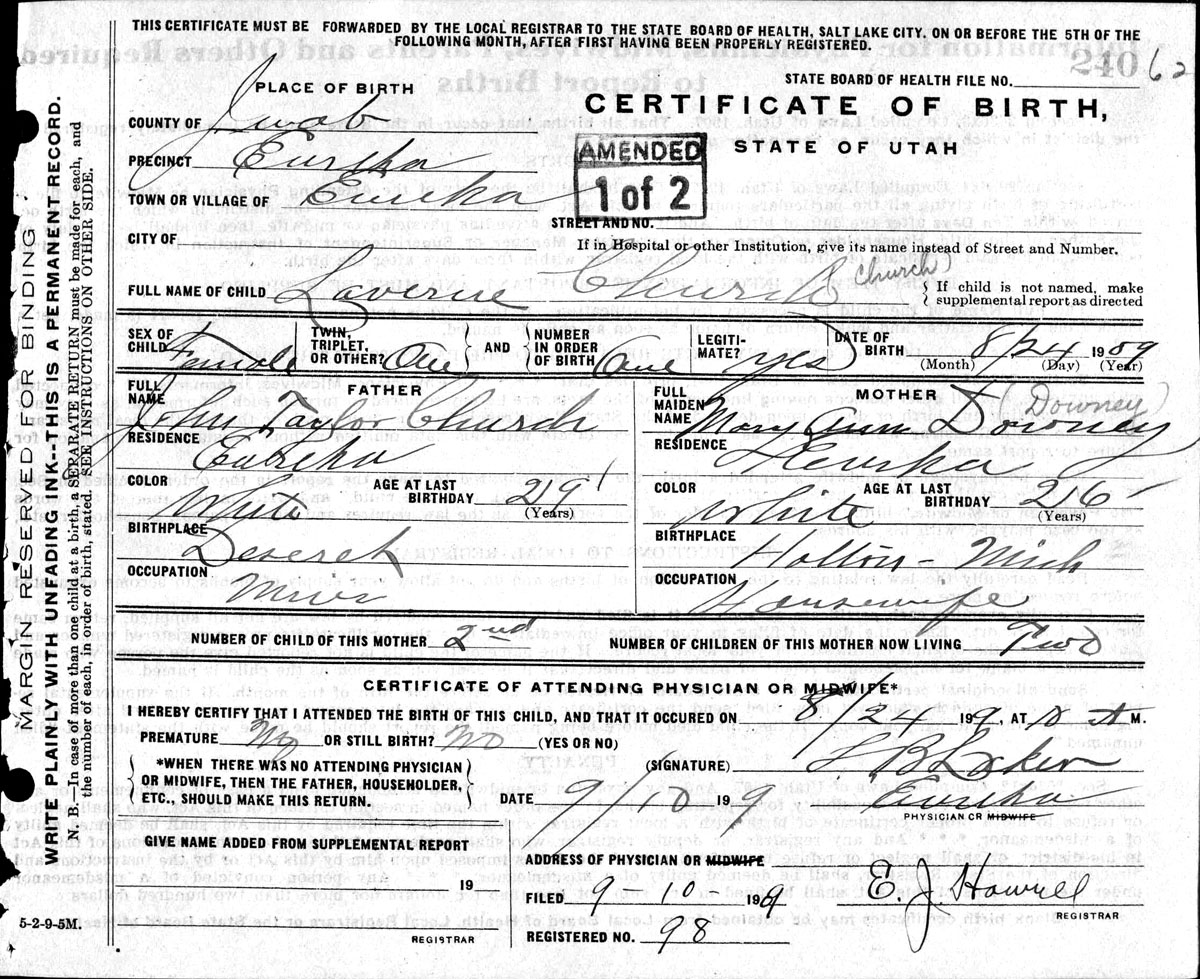 THIS CERTIFICATE MUST BE FORWARDED BY THE LOCAL REGISTRAR TO THE STATE BOARD OF HEALTH, SALT LAKE CITY. ON OR BEFORE THE 5TH OF THE
FOLLOWING MONTH, AFTER FIRST HAVING BEEN PROPERLY REGISTERED.
240 62
STATE BOARD OF HEALTH FILE NO.
PLACE OF BIRTH
CERTIFICATE OF BIRTH,
STATE OF UTAH
COUNTY OF Juab
PRECINCT Eureka
TOWN OR VILLAGE OF Eureka
AMENDED
1 of 2
STREET AND NO.
CITY OF
If in Hospital or other Institution, give its name instead of Street and Number.
FULL NAME OF CHILD Laverne Church (Church)
If child is not named, make
supplemental report as directed
SEX OF CHILD Female
TWIN, TRIPLET, OR OTHER? One
AND
NUMBER IN ORDER OF BIRTH One
LEGITIMATE? yes
DATE OF BIRTH 8/24 1909
(Month) (Day) (Year)
FATHER
FULL NAME John Taylor Church
RESIDENCE Eureka
COLOR White
AGE AT LAST BIRTHDAY 29
(Years)
BIRTHPLACE Deseret
OCCUPATION Miner
MOTHER
FULL MAIDEN NAME Mary Ann Downey (Downey)
RESIDENCE Eureka
COLOR White
AGE AT LAST BIRTHDAY 26
(Years)
BIRTHPLACE Holton Mich
OCCUPATION Housewife
NUMBER OF CHILD OF THIS MOTHER 2nd
NUMBER OF CHILDREN OF THIS MOTHER NOW LIVING Two
CERTIFICATE OF ATTENDING PHYSICIAN OR MIDWIFE*
I HEREBY CERTIFY THAT I ATTENDED THE BIRTH OF THIS CHILD, AND THAT IT OCCURED ON 8/24 199, AT A M.
PREMATURE No OR STILL BIRTH? No (YES OR NO)
*WHEN THERE WAS NO ATTENDING PHYSICIAN
OR MIDWIFE, THEN THE FATHER, HOUSEHOLDER,
ETC., SHOULD MAKE THIS RETURN.
(SIGNATURE)
DATE 9/10 199 Eureka
PHYSICIAN OR MIDWIFE
GIVE NAME ADDED FROM SUPPLEMENTAL REPORT
19
REGISTRAR
ADDRESS OF PHYSICIAN OR MIDWIFE
FILED 9 10 1909 E. J. Howell
REGISTRAR
REGISTERED NO. 98
5-2-9-5M.
MARGIN RESERVED FOR BINDING
WRITE PLAINLY WITH UNFADING INK--THIS IS A PERMANENT RECORD.
N. B.—In case of more than one child at a birth, a SEPARATE RETURN must be made for each, and
the number of each, in order of birth, stated. SEE INSTRUCTIONS ON OTHER SIDE.